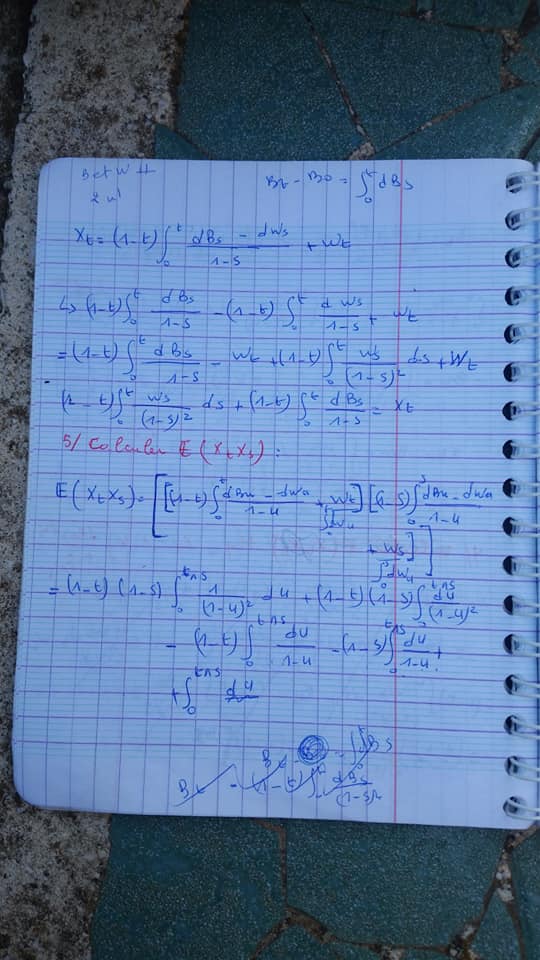 B et W ⊥
2 W
Bt - B0 = ∫₀ᵗ dBs
Xt = (1-t) ∫₀ᵗ (dBs - dWs)/(1-s) + Wt
↳ (1-t) ∫₀ᵗ dBs/(1-s) - (1-t) ∫₀ᵗ dWs/(1-s) + Wt
= (1-t) ∫₀ᵗ dBs/(1-s) - Wt + (1-t) ∫₀ᵗ Ws/(1-s)² ds + Wt
(1-t) ∫₀ᵗ Ws/(1-s)² ds + (1-t) ∫₀ᵗ dBs/(1-s) = Xt
5/ Calculer E(XtXs) :
E(XtXs) = [[(1-t) ∫₀ᵗ (dBu - dWu)/(1-u) + Wt] [(1-s) ∫₀ˢ (dBu - dWu)/(1-u)
∫₀ᵗ dWu
+ Ws]]
∫₀ˢ dWu
= (1-t)(1-s) ∫₀^(t∧s) 1/(1-u)² du + (1-t)(1-s) ∫₀^(t∧s) du/(1-u)²
- (1-t) ∫₀^(t∧s) du/(1-u) - (1-s) ∫₀^(t∧s) du/(1-u) +
+ ∫₀^(t∧s) du